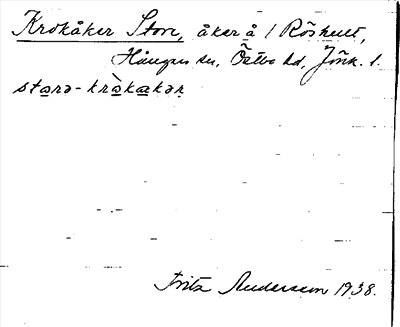 Krokåker Store, åker å 1 Röshult,
Hångers sn, Östbo hd, Jönk. l.
stɷrə-krɷ̀kakər
Fritz Andersson 1938.